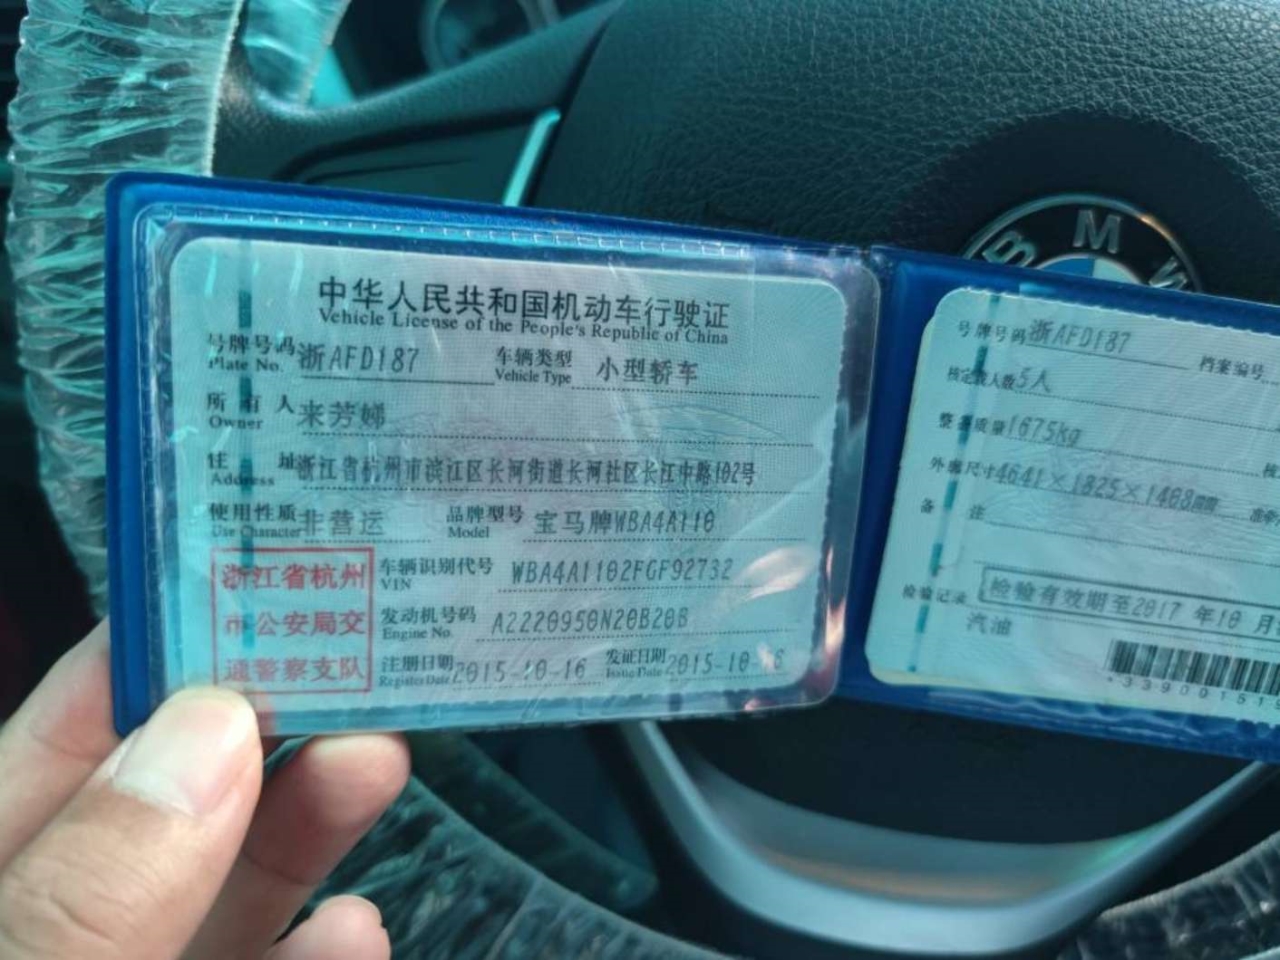 BMW
中华人民共和国机动车行驶证
Vehicle License of the People's Republic of China
号牌号码 Plate No. 浙AFD187 车辆类型 Vehicle Type 小型轿车
所有人 Owner 来芳娣
住址 Address 浙江省杭州市滨江区长河街道长河社区长江中路102号
使用性质 Use Character 非营运 品牌型号 Model 宝马牌WBA4A110
浙江省杭州市公安局交通警察支队
车辆识别代号 VIN WBA4A1102FGF92732
发动机号码 Engine No. A2220950N20B20B
注册日期 Register Date 2015-10-16 发证日期 Issue Date 2015-10-16
号牌号码 浙AFD187 档案编号
核定载人数 5人
整备质量 1675kg
外廓尺寸 4641×1825×1408mm
备注
检验记录 检验有效期至2017年10月
汽油
*33900151